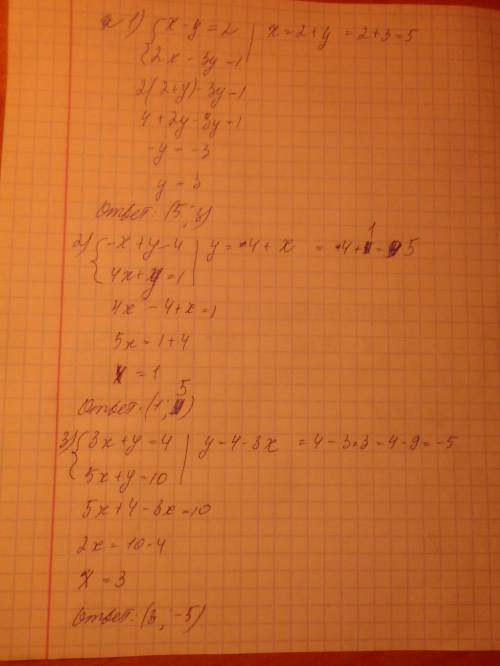 1) { x - y = 2 | x = 2 + y = 2 + 3 = 5
{ 2x - 3y = 1
2(2+y) - 3y = 1
4 + 2y - 3y = 1
-y = -3
y = 3
Ответ: (5; 3)
2) { -x + y = 4 | y = 4 + x = 4 + 1 = 5
{ 4x + y = 1
4x - 4 + x = 1
5x = 1 + 4
x = 1
Ответ: (1; 5)
3) { 3x + y = 4 | y = 4 - 3x = 4 - 3·3 = 4 - 9 = -5
{ 5x + y = 10
5x + 4 - 3x = 10
2x = 10 - 4
x = 3
Ответ: (3; -5)